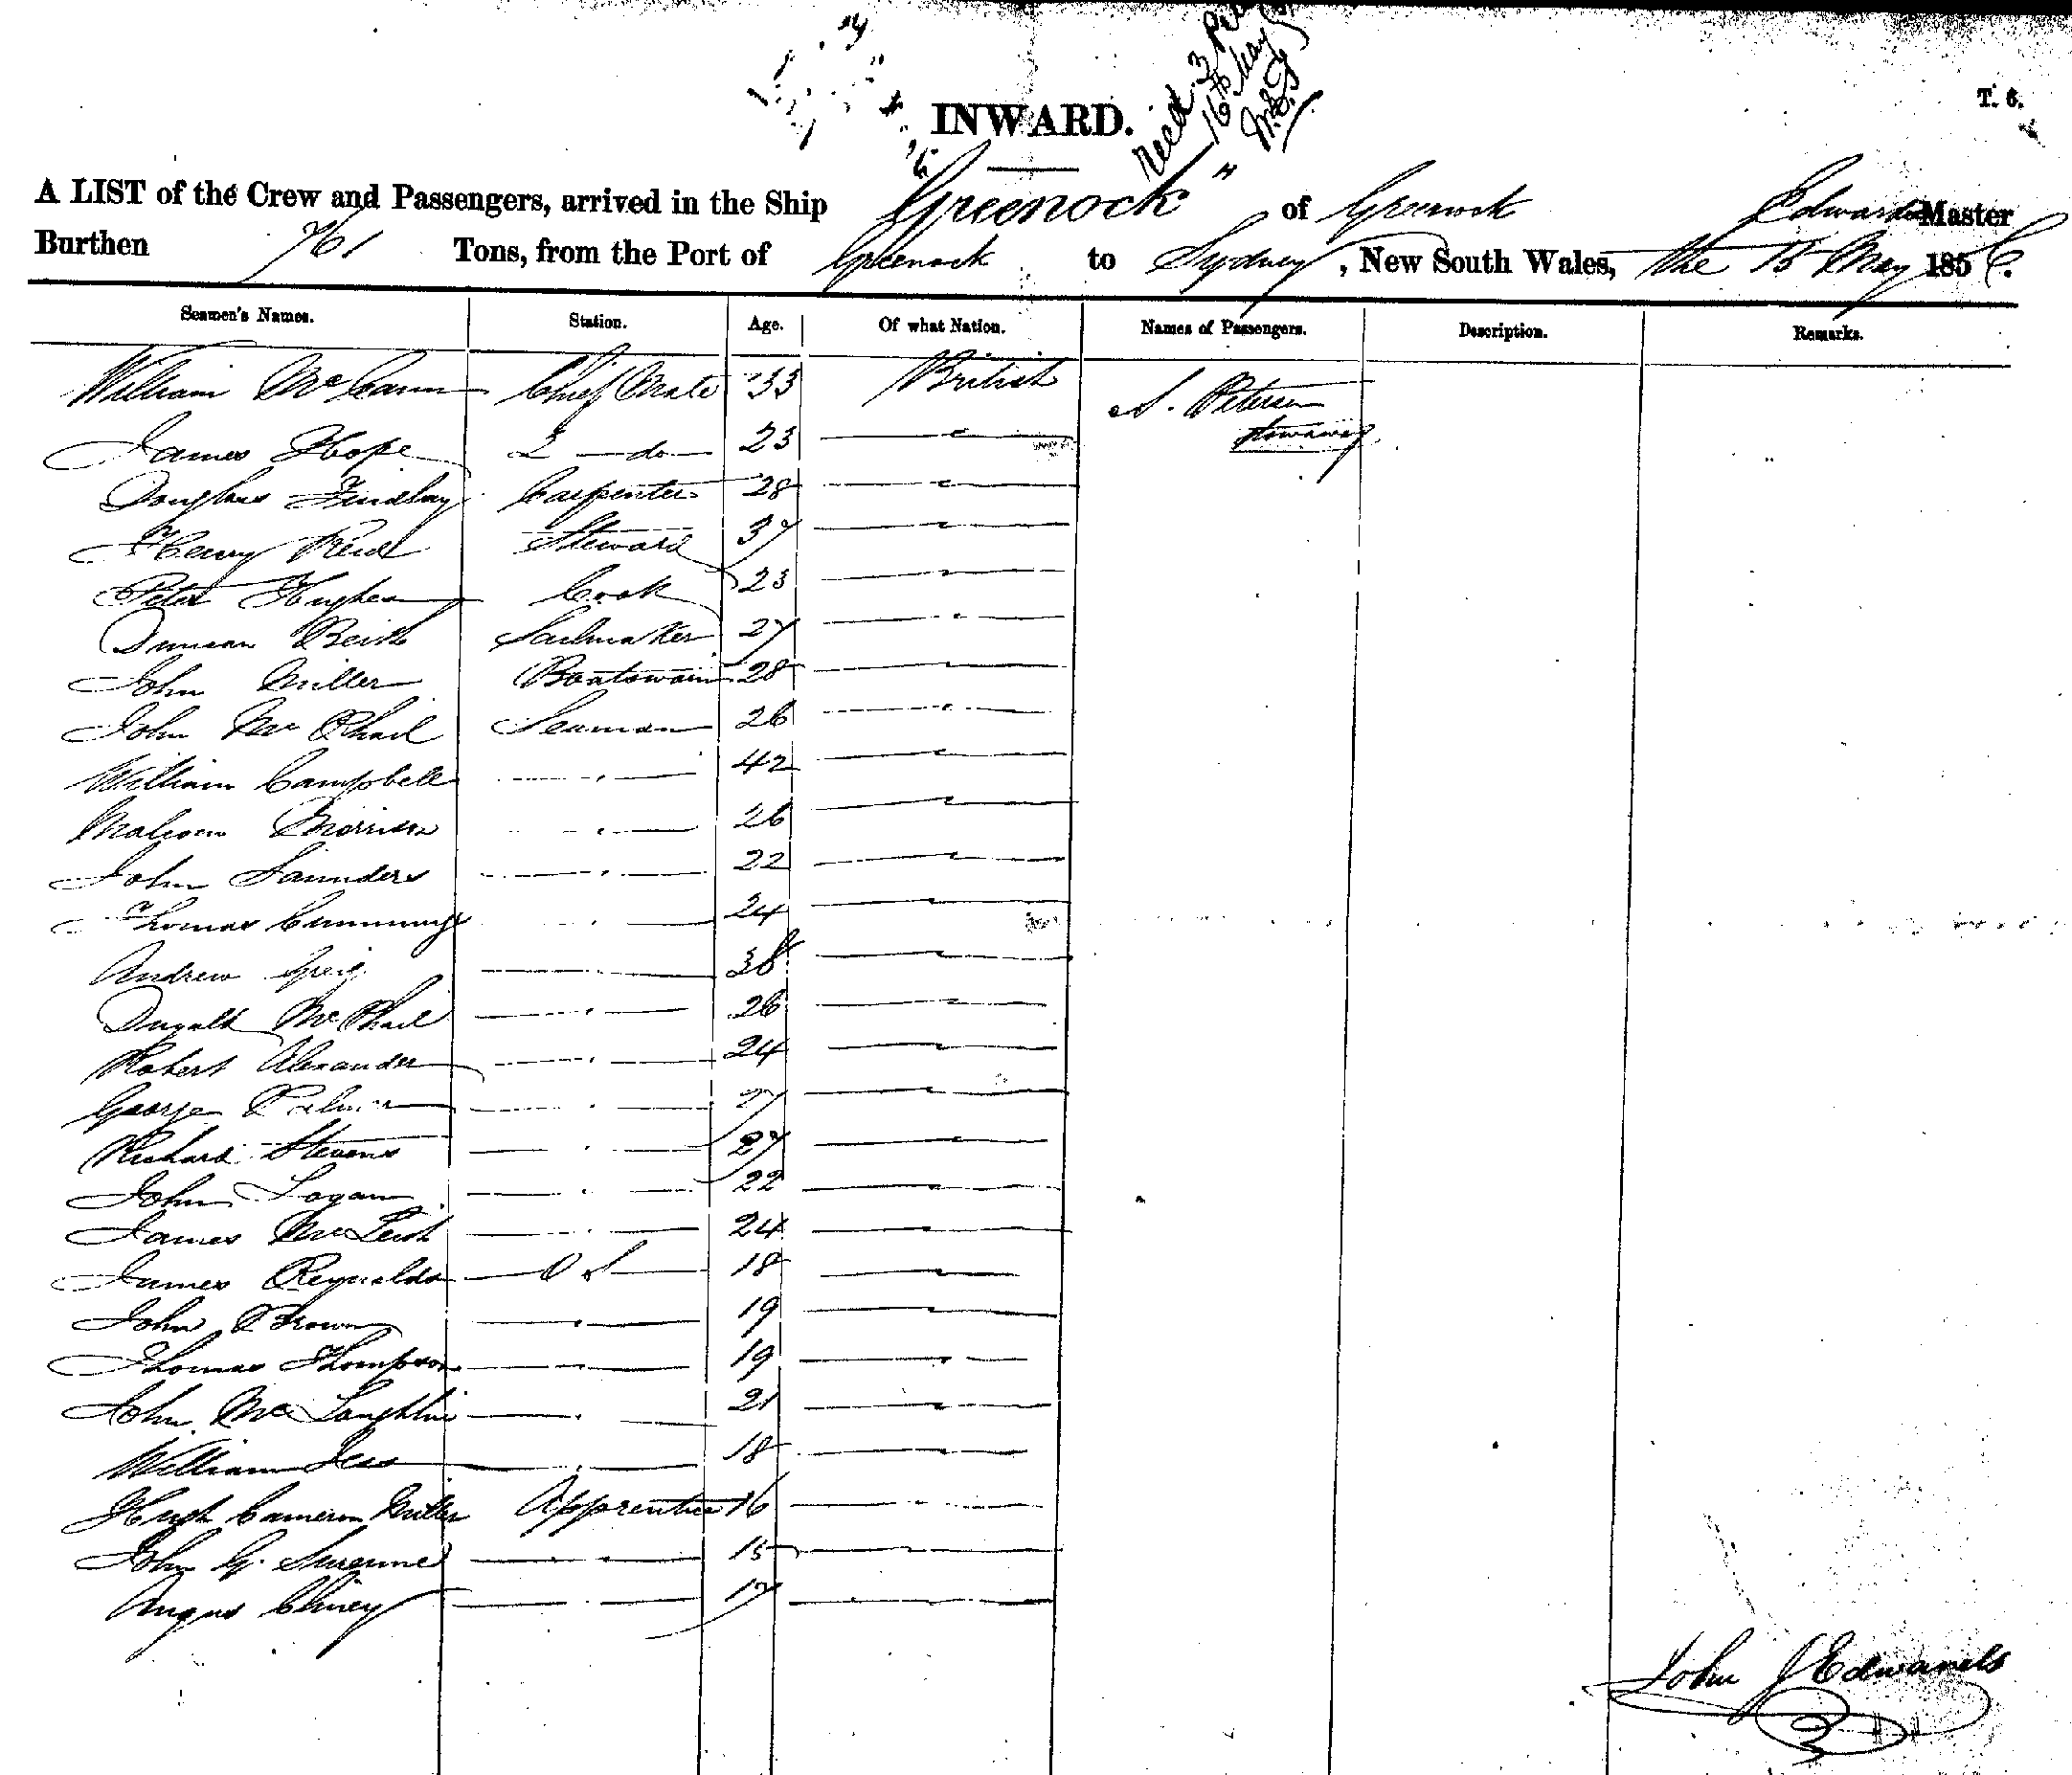 Recd 3 P
16th May
INWARD.
T. 6.
A LIST of the Crew and Passengers, arrived in the Ship "Greenock" of Greenock Edwards Master
Burthen 761 Tons, from the Port of Greenock to Sydney, New South Wales, the 15 May 1856.
Seamen's Names. Station. Age. Of what Nation. Names of Passengers. Description. Remarks.
William McCann Chief Mate 33 British A. Petersen
stowaway
James Hope 2 do 23 "
Douglass Findlay Carpenter 28 "
Henry Reid Steward 37 "
Peter Hughes Cook 23 "
Duncan Keith Sailmaker 27 "
John Miller Boatswain 28 "
John McPhail Seaman 26 "
William Campbell " 42 "
Malcom Morrison " 26 "
John Saunders " 22 "
Thomas Cummings " 24 "
Andrew Greig " 38 "
Dugald McPhail " 26 "
Robert Alexander " 24 "
George Palmer " 27 "
Richard Stevens " 27 "
John Logan " 22 "
James McLeish " 24 "
James Reynolds O S 18 "
John Brown " 19 "
Thomas Thompson " 19 "
John McLaughlin " 21 "
William " 18 "
Hugh Cameron Miller Apprentice 16 "
John G. " 15 "
Angus " 17 "
John J Edwards